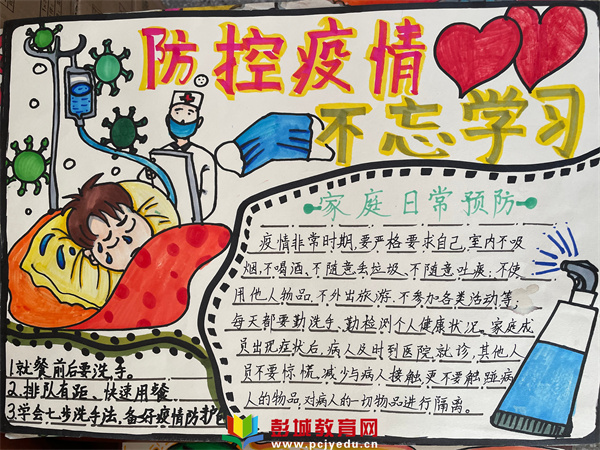 防控疫情
不忘学习
家庭日常预防
疫情非常时期,要严格要求自己,室内不吸
烟,不喝酒、不随意丢垃圾、不随意吐痰,不使
用他人物品,不外出旅游,不参加各类活动等,
每天都要勤洗手、勤检测个人健康状况。家庭成
员出现症状后,病人及时到医院就诊,其他人
员不要惊慌,减少与病人接触,更不要触碰病
人的物品,对病人的一切物品进行隔离。
1.就餐前后要洗手。
2.排队有距、快速用餐
3.学会七步洗手法,备好疫情防护
彭城教育网
www.pcjyedu.cn